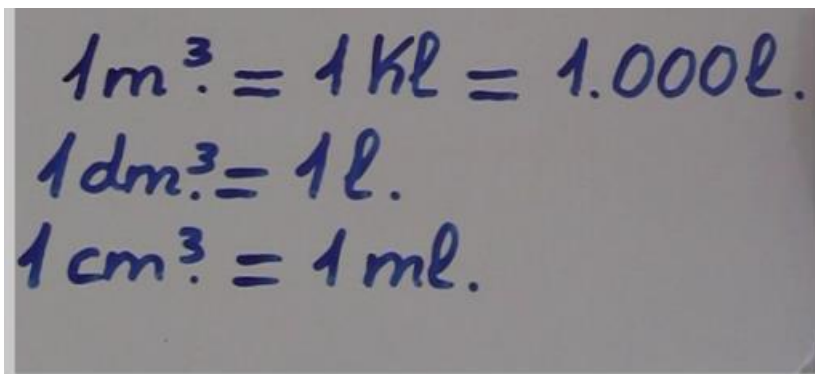 1m³. = 1Kl = 1.000l.
1dm³. = 1l.
1cm³. = 1ml.